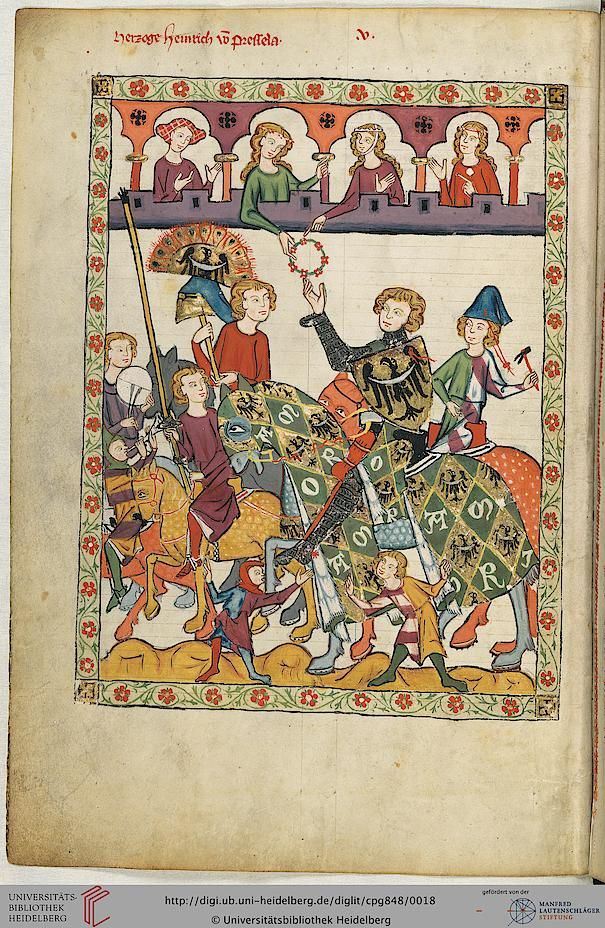 Herzoge Heinrich vō Pressela.
.v.
UNIVERSITÄTS-
BIBLIOTHEK
HEIDELBERG
http://digi.ub.uni-heidelberg.de/diglit/cpg848/0018
© Universitätsbibliothek Heidelberg
gefördert von der
MANFRED
LAUTENSCHLÄGER
STIFTUNG